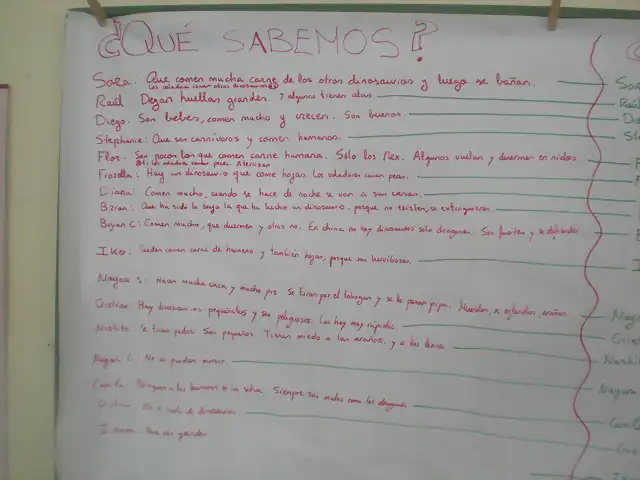 ¿QUÉ SABEMOS?
Sara. Que comen mucha carne de los otros dinosaurios y luego se bañan.
Los voladores comen otros dinosaurios
Raúl Dejan huellas grandes. Y algunos tienen alas
Diego. Son bebes, comen mucho y crecen. Son buenos.
Stephanie: Que son carnívoros y comen humanos.
Flor- Son pocos los que comen carne humana. Sólo los Rex. Algunos vuelan y duermen en nidos
los voladores comen peces. Aterrizan
Fiorella: Hay un dinosaurio que come hojas. Los voladores comen peces.
Diana: Comen mucho, cuando se hace de noche se van a sus camas.
Brian: Que ha sido la bruja la que ha hecho un dinosaurio, porque no existen, se extinguieron
Bryan C: Comen mucho, que duermen y otros no. En china no hay dinosaurios sólo dragones. Son fuertes y se defienden
Iker: Pueden comer carne de humano y también hojas, porque son herbívoros.
Nayara S: Hacen mucha caca y mucho pis. Se tiran por el tobogan y se lo pasan pipa. Muerden, se esfuerdan, arañan
Cristina Hay dinosaurios pequeñitos y son peligrosos. Los hay muy rápidos
Nashla Se tiran pedos. Son pequeños. Tienen miedo a las arañas, y a los leones
Nayara C: No se pueden morir.
Camila a los humanos en la selva. Siempre son malos como los dragones
de dinosaurios
Que son grandes
Sara
Raúl
Nayara